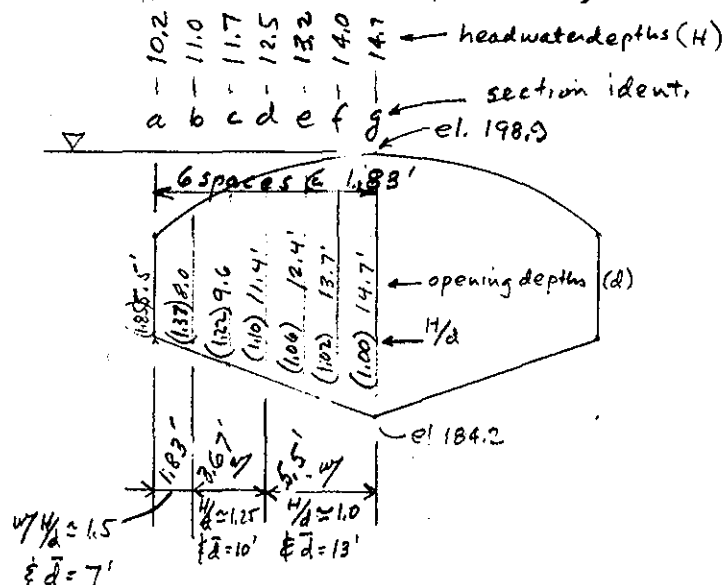 10.2 11.0 11.7 12.5 13.2 14.0 14.7 ← headwater depths (H)
a b c d e f g ← section ident.
el. 198.9
6 spaces @ 1.83'
(1.85) 5.5' (1.37) 8.0 (1.22) 9.6 (1.10) 11.4' (1.06) 12.4' (1.02) 13.7' (1.00) 14.7' ← opening depths (d)
← H/d
el 184.2
1.83' 3.67' w/ 5.5' w/
w/ H/d ≃ 1.5 H/d ≃ 1.25 H/d ≃ 1.0
& d̄ = 7' & d̄ = 10' & d̄ = 13'